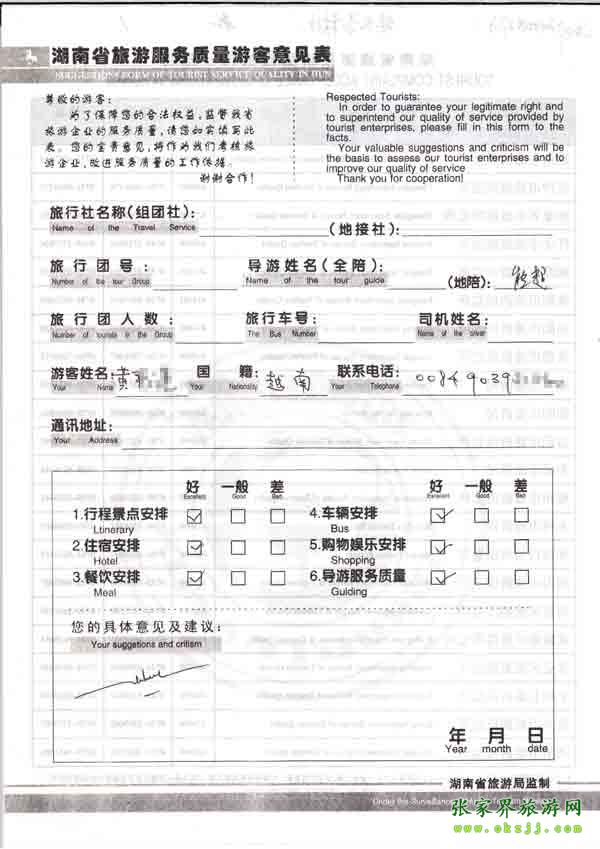 湖南省旅游服务质量游客意见表
SUGGESTIONS FORM OF TOURIST SERVICE QUALITY IN HUN
尊敬的游客:
为了保障您的合法权益,监督我省
旅游企业的服务质量,请您如实填写此
表。您的宝贵意见,将作为我们考核旅
游企业、改进服务质量的工作依据。
谢谢合作!
Respected Tourists:
In order to guarantee your legitimate right and
to superintend our quality of service provided by
tourist enterprises, please fill in this form to the
facts.
Your valuable suggestions and criticism will be
the basis to assess our tourist enterprises and to
improve our quality of service
Thank you for cooperation!
旅行社名称(组团社): (地接社):
Name of the Travel Service
旅行团号: 导游姓名(全陪): (地陪):
Number of the tour Group Name of the tour guide
旅行团人数: 旅行车号: 司机姓名:
Number of tourists in the Group The Bus Number Name of the driver
游客姓名: 黄 国籍: 越南 联系电话: 00849039
Your Name Your Nationality Your Telephone
通讯地址:
Your Address
好 一般 差 好 一般 差
Excellent Good Bad Excellent Good Bad
1.行程景点安排 4.车辆安排
Ltinerary Bus
2.住宿安排 5.购物娱乐安排
Hotel Shopping
3.餐饮安排 6.导游服务质量
Meal Guiding
您的具体意见及建议:
Your suggetions and critism
年 月 日
Year month date
湖南省旅游局监制
Under the Surveillance
张家界旅游网
www.okzjj.com